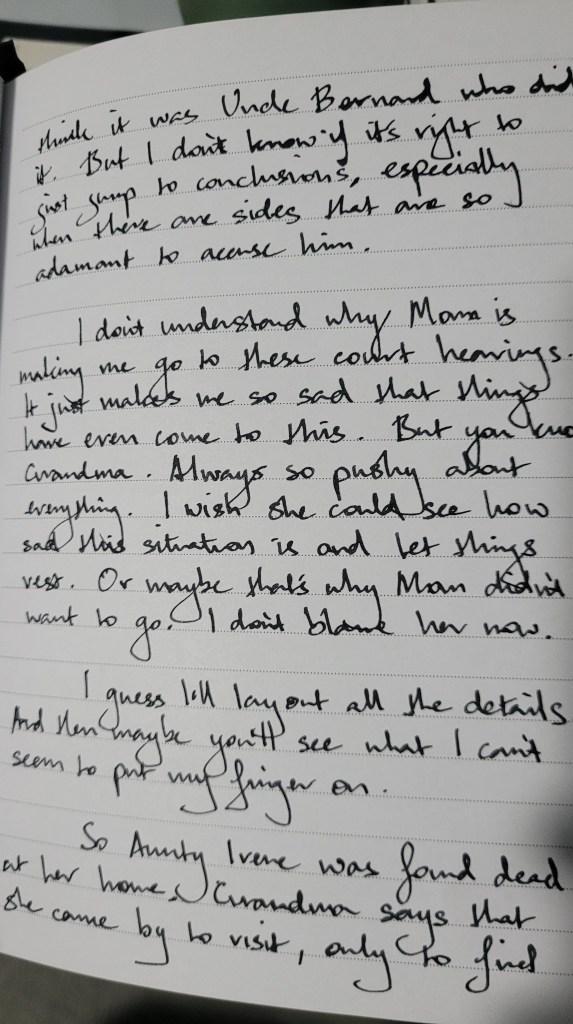 think it was Uncle Bernard who did
it. But I don't know if it's right to
just jump to conclusions, especially
when there are sides that are so
adamant to accuse him.
I don't understand why Moma is
making me go to these court hearings.
It just makes me so sad that things
have even come to this. But you know
Grandma. Always so pushy about
everything. I wish she could see how
sad this situation is and let things
rest. Or maybe that's why Mom didn't
want to go. I don't blame her now.
I guess I'll layout all the details
And then maybe you'll see what I can't
seem to put my finger on.
So Aunty Irene was found dead
at her home. Grandma says that
she came by to visit, only to find